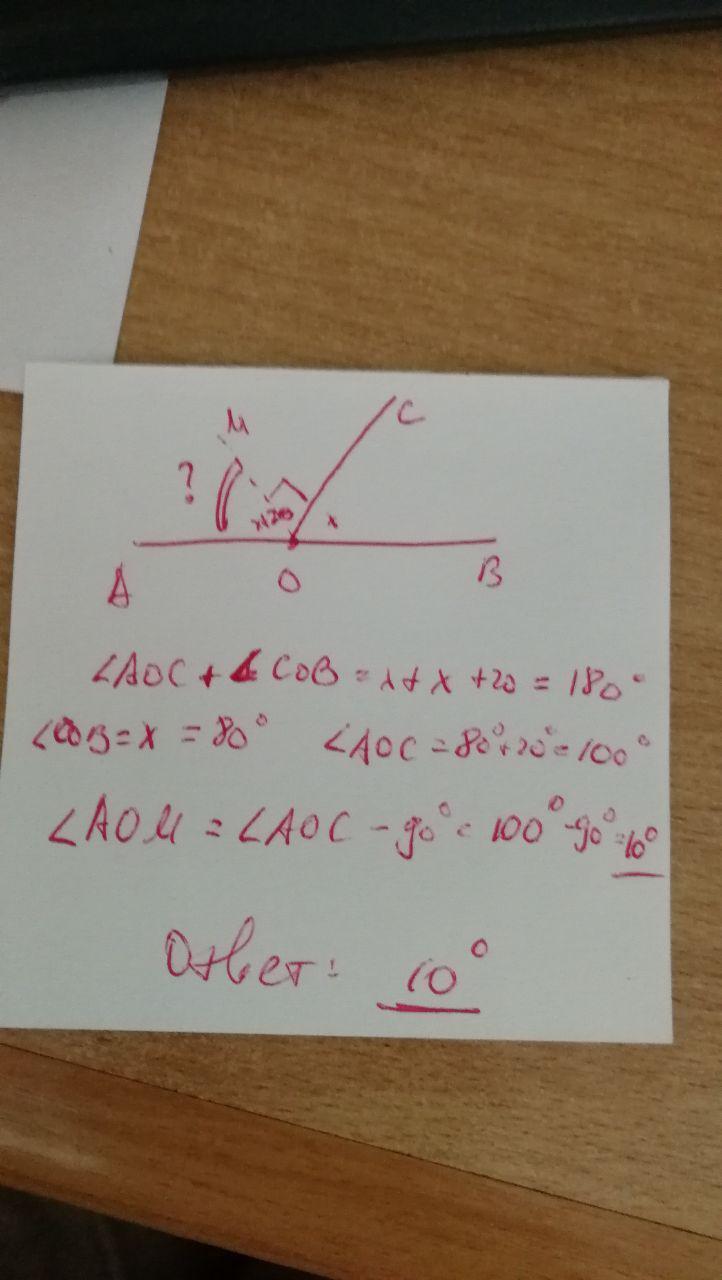 M
C
?
x+20
x
A
O
B
∠AOC + ∠COB = x + x + 20 = 180°
∠COB = x = 80° ∠AOC = 80° + 20° = 100°
∠AOM = ∠AOC - 90° = 100° - 90° = 10°
Ответ: 10°